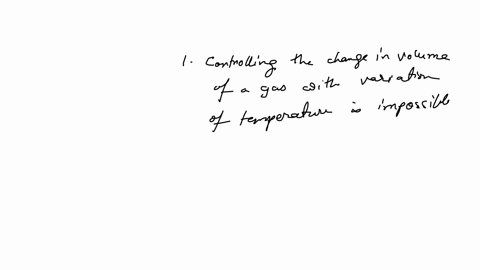 1. Controlling the change in volume
of a gas with variation
of temperature is impossible